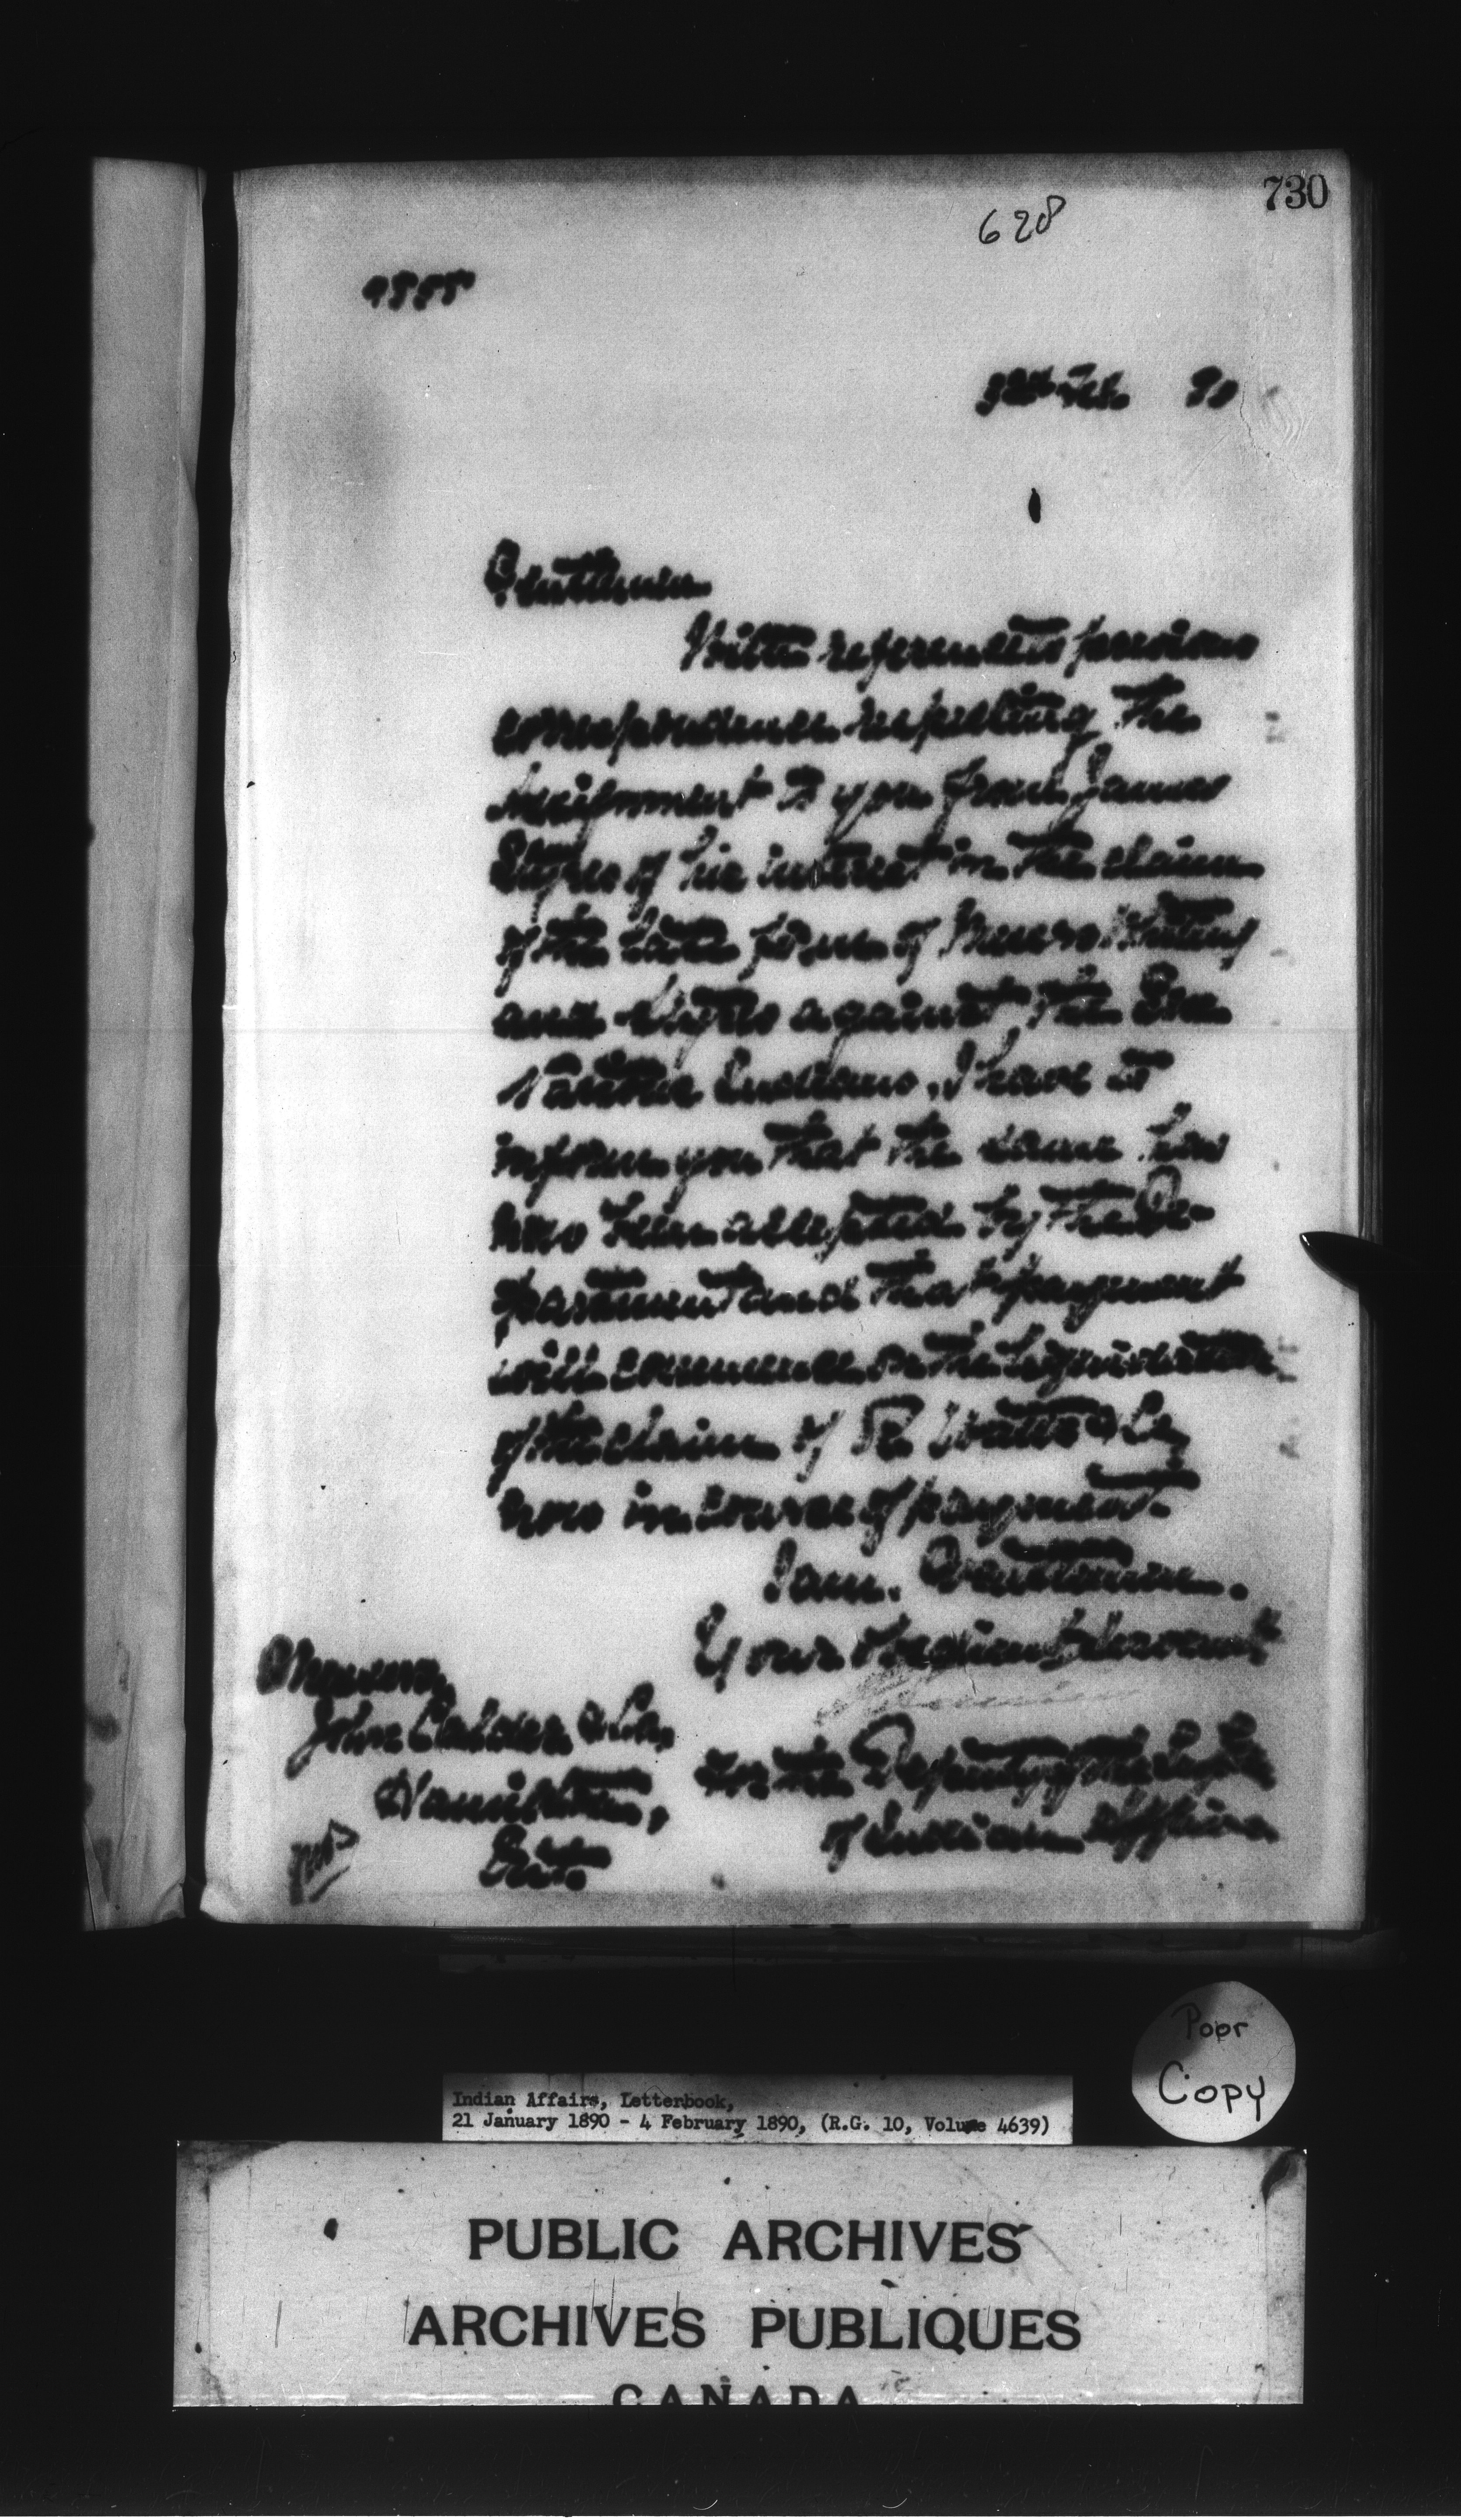 730
628
Feb. 90
Gentlemen
With reference to previous
correspondence respecting the
assignment to you from James
Styres of his interest in the claim
of the late firm of
and Styres against the Six
Nation Indians, I have to
inform you that the same has
now been accepted by the De-
partment and that payment
will commence on the liquidation
of the claim of R. Watts & Co,
now in course of payment.
I am, Gentlemen,
Your obedient servant
Messrs
John Calder & Co,
For the Deputy of the Supt. Gen.
Hamilton,
of Indian Affairs
Ont.
Poor
Copy
Indian Affairs, Letterbook,
21 January 1890 - 4 February 1890, (R.G. 10, Volume 4639)
PUBLIC ARCHIVES
ARCHIVES PUBLIQUES
CANADA